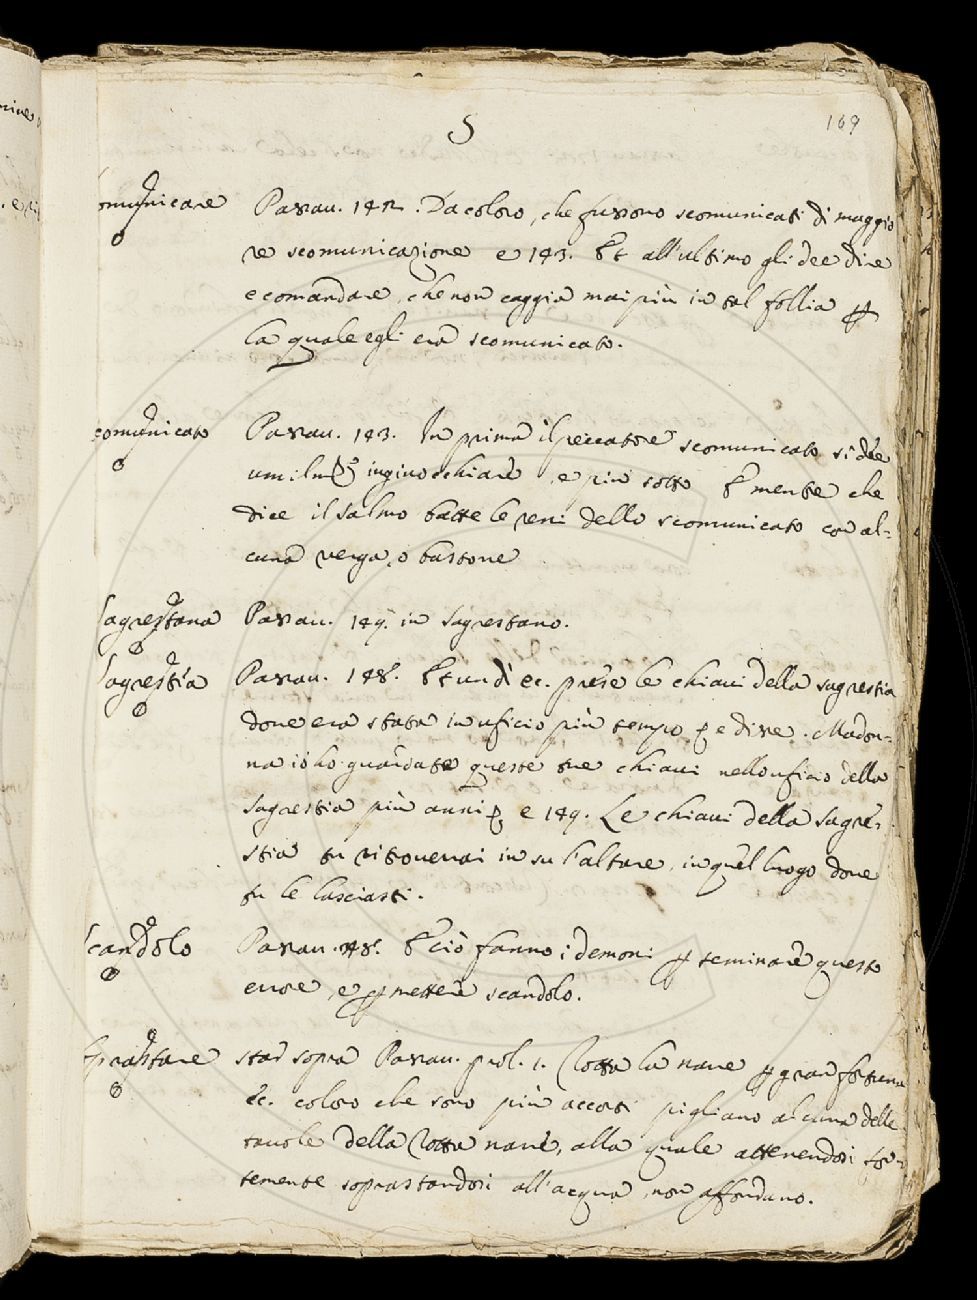 S
169
comunicare Passau. 142. Da coloro, che furono scomunicati di maggio
re scomunicazione e 143. Et all'ultimo gli dee dire
e comandare, che non caggia mai più in tal follia p
la quale egli era scomunicato.
comunicato Passau. 143. In prima il peccatore scomunicato si dee
umilm.te inginocchiare, e più sotto Et mentre che
dice il Salmo batte le reni dello scomunicato con al-
cuna verga, o bastone
Sagrestana Passau. 149. in Sagrestano.
Sagrestia Passau. 148. Et un dì ec. prese le chiavi della sagrestia
doue era stata in uficio più tempo, e disse. Madon-
na io ho guardate queste tue chiaui nell'oficio della
Sagrestia più anni e 149. Le chiaui della sagre-
stia tu ritrouerrai in su l'altare, in quel luogo doue
tu le lasciasti.
Scandolo Passau. 48. E ciò fanno i demoni p seminare questo
errore, e p mettere scandolo.
Soprastare star sopra Passau. prol. 1. Rotta la naue p gran fortuna
ec. coloro che sono più accorti pigliano alcuna delle
tauole della rotta naue, alla quale attenendosi for-
temente soprastandosi all'acqua, non affondano.